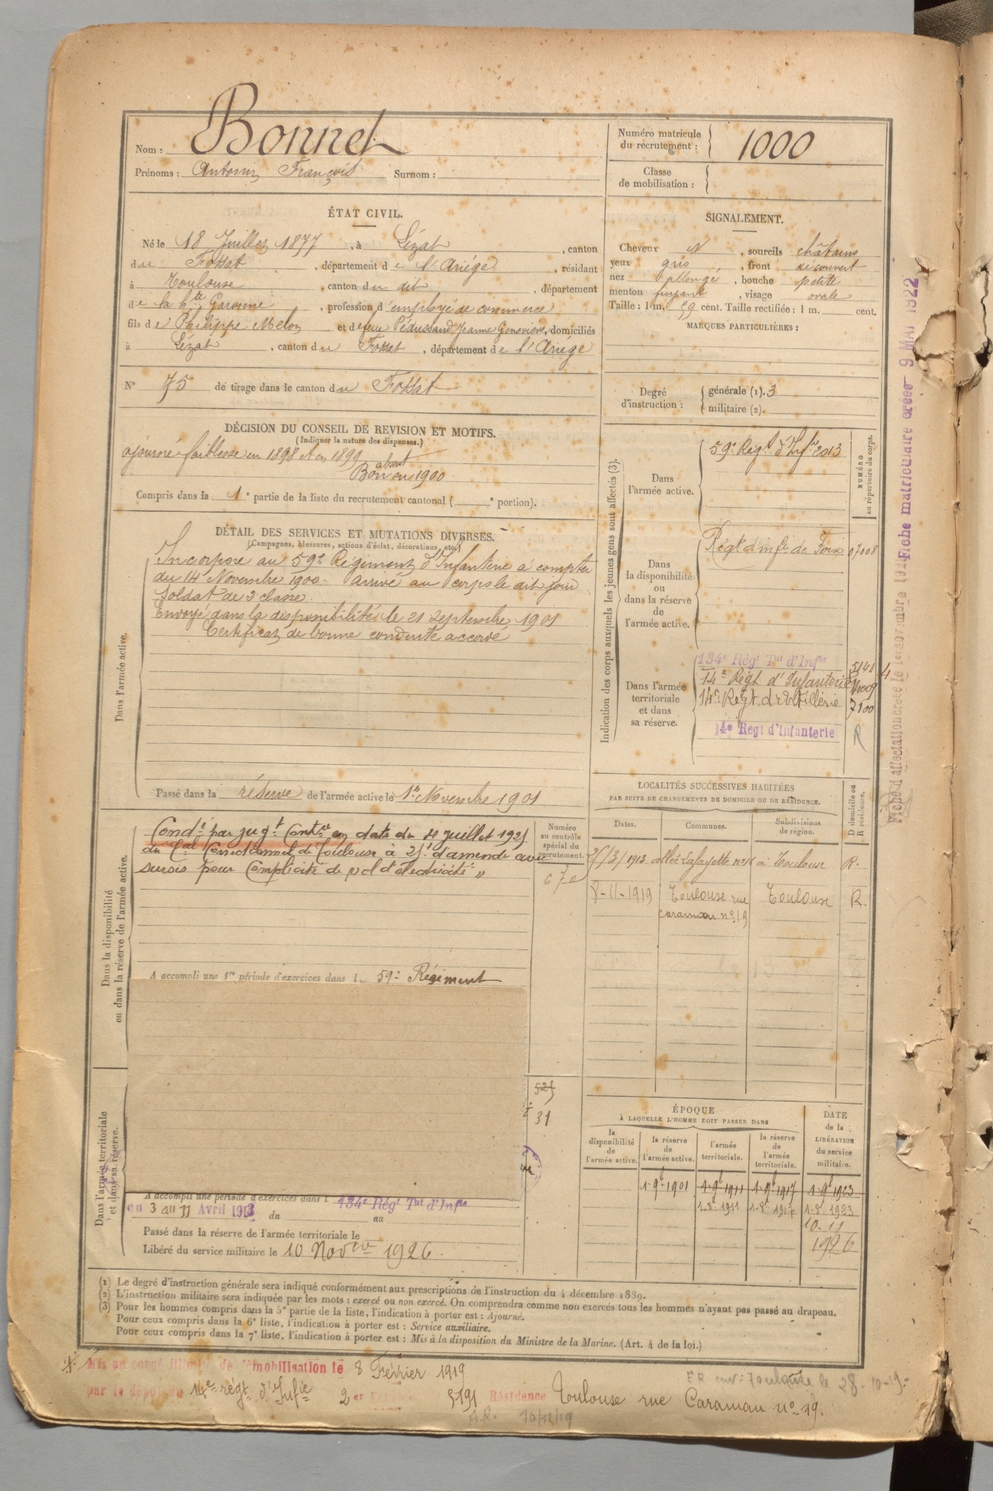 Nom : Bonnet
Prénoms : Antonin François Surnom :
Numéro matricule
du recrutement : 1000
Classe
de mobilisation :
ÉTAT CIVIL.
Né le 18 Juillet 1877, à Lézat, canton
du Fossat, département de l'Ariège, résidant
à Toulouse, canton du dit, département
de la hte Garonne, profession d'employé de commerce
fils de Philippe Melon et de feue Jeanne Geneviève, domiciliés
à Lézat, canton du Fossat, département de l'Ariège
SIGNALEMENT.
Cheveux N, sourcils châtains
yeux gris, front découvert
nez allongé, bouche petite
menton fuyant, visage ovale
Taille : 1 m. 59 cent. Taille rectifiée : 1 m. cent.
MARQUES PARTICULIÈRES :
N° 75 de tirage dans le canton du Fossat
Degré
d'instruction :
générale (1). 3
militaire (2).
DÉCISION DU CONSEIL DE REVISION ET MOTIFS.
(Indiquer la nature des dispenses.)
ajourné faiblesse en 1898 et en 1899
absent
Bon en 1900
Compris dans la 1e partie de la liste du recrutement cantonal ( e portion).
DÉTAIL DES SERVICES ET MUTATIONS DIVERSES.
(Campagnes, blessures, actions d'éclat, décorations, etc.)
Dans l'armée active.
Incorporé au 59e Régiment d'Infanterie à compter
du 14 Novembre 1900. Arrivé au corps le dit jour
Soldat de 2 classe.
Envoyé dans la disponibilité le 21 Septembre 1901
Certificat de bonne conduite accordé
Passé dans la réserve de l'armée active le 1er Novembre 1901
Indication des corps auxquels les jeunes gens sont affectés (3).
NUMÉRO
au répertoire du corps.
Dans
l'armée active.
59e Régt d'Infrie 2013
Dans
la disponibilité
ou
dans la réserve
de
l'armée active.
Régt d'infie de Foix 07008
Dans l'armée
territoriale
et dans
sa réserve.
134e Régt Tal d'Infie 5141
14e Régt d'Infanterie
14e Régt d'Artillerie 7100
14e Regt d'Infanterie
R
Fiche matriculaire créée 9 MAI 1922
LOCALITÉS SUCCESSIVES HABITÉES
PAR SUITE DE CHANGEMENTS DE DOMICILE OU DE RÉSIDENCE.
Dates.
Communes.
Subdivisions
de région.
D domicile ou
R résidence.
1913 allée Lafayette à Toulouse R.
8-11-1919 Toulouse rue Toulouse R.
caraman no 19
Dans la disponibilité
ou dans la réserve de l'armée active.
Condé par jugt Contre en date du 4 Juillet 1925
du Cal Correctionnel de Toulouse à 25f d'amende avec
sursis pour Complicité de vol d'électricité "
Numéro
au contrôle
spécial du
recrutement.
670
A accompli une 1re période d'exercices dans le 59e Régiment
525
31
Dans l'armée territoriale
et dans sa réserve.
A accompli une période d'exercices dans l 134e Régt Tal d'Infie
du 3 au 11 Avril 1913 du au
Passé dans la réserve de l'armée territoriale le
Libéré du service militaire le 10 Novbre 1926.
ÉPOQUE
À LAQUELLE L'HOMME DOIT PASSER DANS
DATE
de la
LIBÉRATION
du service
militaire.
la
disponibilité
de
l'armée active.
la réserve
de
l'armée active.
l'armée
territoriale.
la réserve
de
l'armée
territoriale.
1-9-1901 1-9-1911 1-9-1917 1-9-1923
1-8-1911 1-8-1917 1-8-1923
10-11
1926
(1) Le degré d'instruction générale sera indiqué conformément aux prescriptions de l'instruction du 4 décembre 1889.
(2) L'instruction militaire sera indiquée par les mots : exercé ou non exercé. On comprendra comme non exercés tous les hommes n'ayant pas passé au drapeau.
(3) Pour les hommes compris dans la 5e partie de la liste, l'indication à porter est : Ajourné.
Pour ceux compris dans la 6e liste, l'indication à porter est : Service auxiliaire.
Pour ceux compris dans la 7e liste, l'indication à porter est : Mis à la disposition du Ministre de la Marine. (Art. 4 de la loi.)
Mis en congé illimité de démobilisation le 8 Février 1919
par le dépôt du 14e régt d'Infie 2er 5191 Résidence Toulouse rue Caraman no 19.
Toulouse le 28-10-19